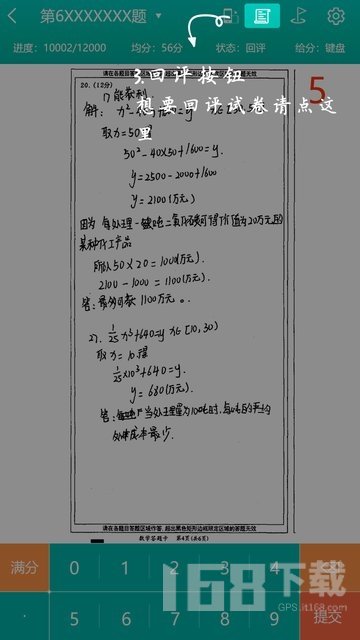 第6XXXXXXX题
进度：10002/12000 均分：56分 状态：回评 给分：键盘
请在各题目答题区域内作答，超出黑色矩形边框限定区域的答案无效
3.回评按钮
想要回评试卷请点这
里
5
20. (12分)
解：
取x=50
50²-40×50+1600=y.
y=2500-2000+1600
y=2100(万元)
因为 每处理一吨二氧化碳可得价值为20万元的
某种化工产品
所以50×20=1000(万元).
2100-1000=1100(万元).
答：最多亏款1100万元。
27. 1/25 x³+640=y x∈[10, 30)
取x=10.得
1/25×10³+640=y.
y=680(万元).
答：当处理量为10吨时，每吨的平均
处理成本最少.
请在各题目答题区域作答，超出黑色矩形边框限定区域的答案无效
数学答题卡 第4页(共6页)
满分 0 1 2 3 4
· 5 6 7 8 9 提交
168下载
GPS.it168.com